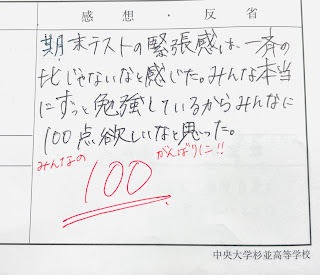 感想・反省
期末テストの緊張感は、一斉の
比じゃないなと感じた。みんな本当
にずっと勉強しているからみんなに
100点欲しいなと思った。
みんなの がんばりに!!
100
中央大学杉並高等学校